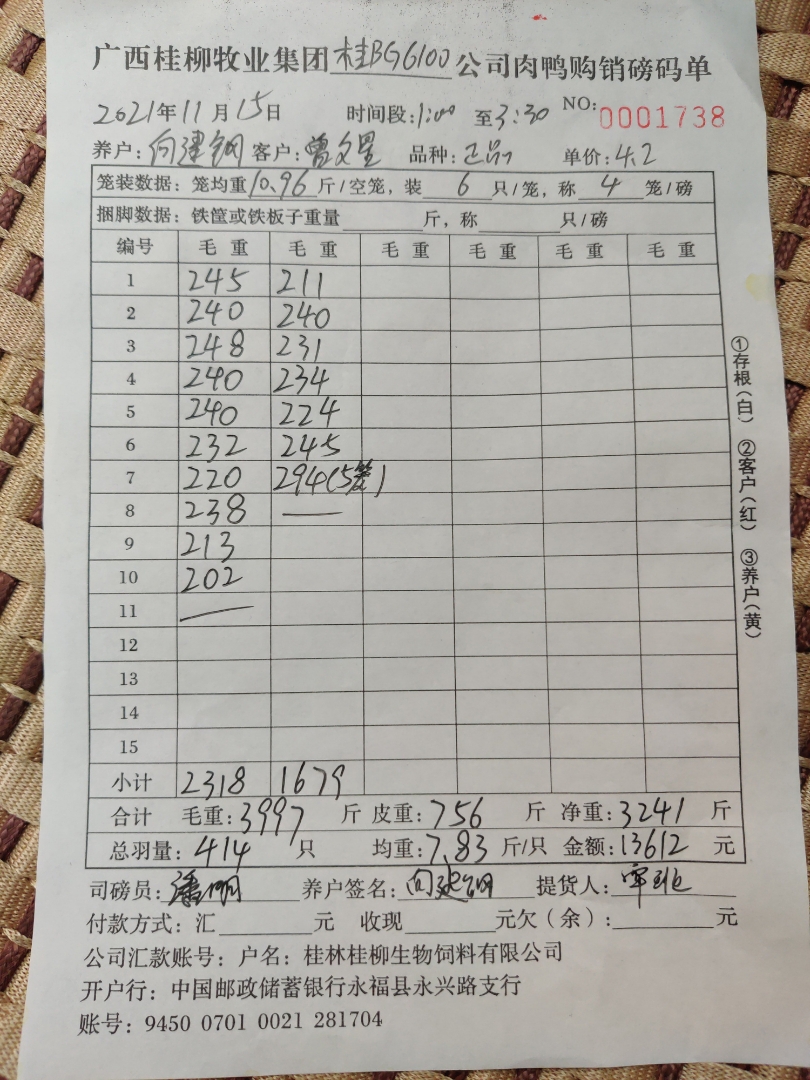 广西桂柳牧业集团桂BG6100公司肉鸭购销磅码单
2021年11月15日 时间段:1:00 至3:30 NO:0001738
养户:向建钢 客户:曾文星 品种:正品 单价:4.2
笼装数据:笼均重10.96斤/空笼,装6只/笼,称4笼/磅
捆脚数据:铁筐或铁板子重量 斤,称 只/磅
编号 毛重 毛重 毛重 毛重 毛重 毛重
1 245 211
2 240 240
3 248 231
4 240 234
5 240 224
6 232 245
7 220 294(5笼)
8 238 —
9 213
10 202
11 —
12
13
14
15
小计 2318 1679
合计 毛重:3997 斤 皮重:756 斤 净重:3241 斤
总羽量:414 只 均重:7.83 斤/只 金额:13612 元
司磅员: 养户签名:向建钢 提货人:
付款方式:汇 元 收现 元欠(余): 元
公司汇款账号:户名:桂林桂柳生物饲料有限公司
开户行:中国邮政储蓄银行永福县永兴路支行
账号:9450 0701 0021 281704
①存根(白) ②客户(红) ③养户(黄)